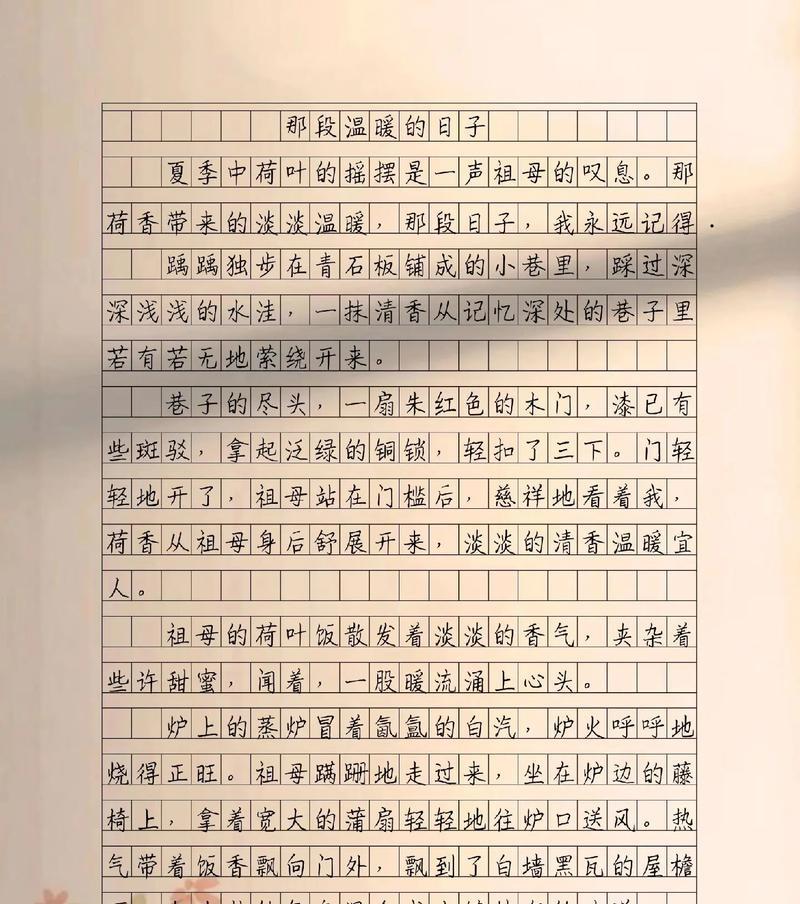 那段温暖的日子
夏季中荷叶的摇摆是一声祖母的叹息。那
荷香带来的淡淡温暖，那段日子，我永远记得.
踽踽独步在青石板铺成的小巷里，踩过深
深浅浅的水洼，一抹清香从记忆深处的巷子里
若有若无地萦绕开来。
巷子的尽头，一扇朱红色的木门，漆已有
些斑驳，拿起泛绿的铜锁，轻扣了三下。门轻
轻地开了，祖母站在门槛后，慈祥地看着我，
荷香从祖母身后舒展开来，淡淡的清香温暖宜
人。
祖母的荷叶饭散发着淡淡的香气，夹杂着
些许甜蜜，闻着，一股暖流涌上心头。
炉上的蒸炉冒着氤氲的白汽，炉火呼呼地
烧得正旺。祖母蹒跚地走过来，坐在炉边的藤
椅上，拿着宽大的蒲扇轻轻地往炉口送风。热
气带着饭香飘向门外，飘到了白墙黑瓦的屋檐